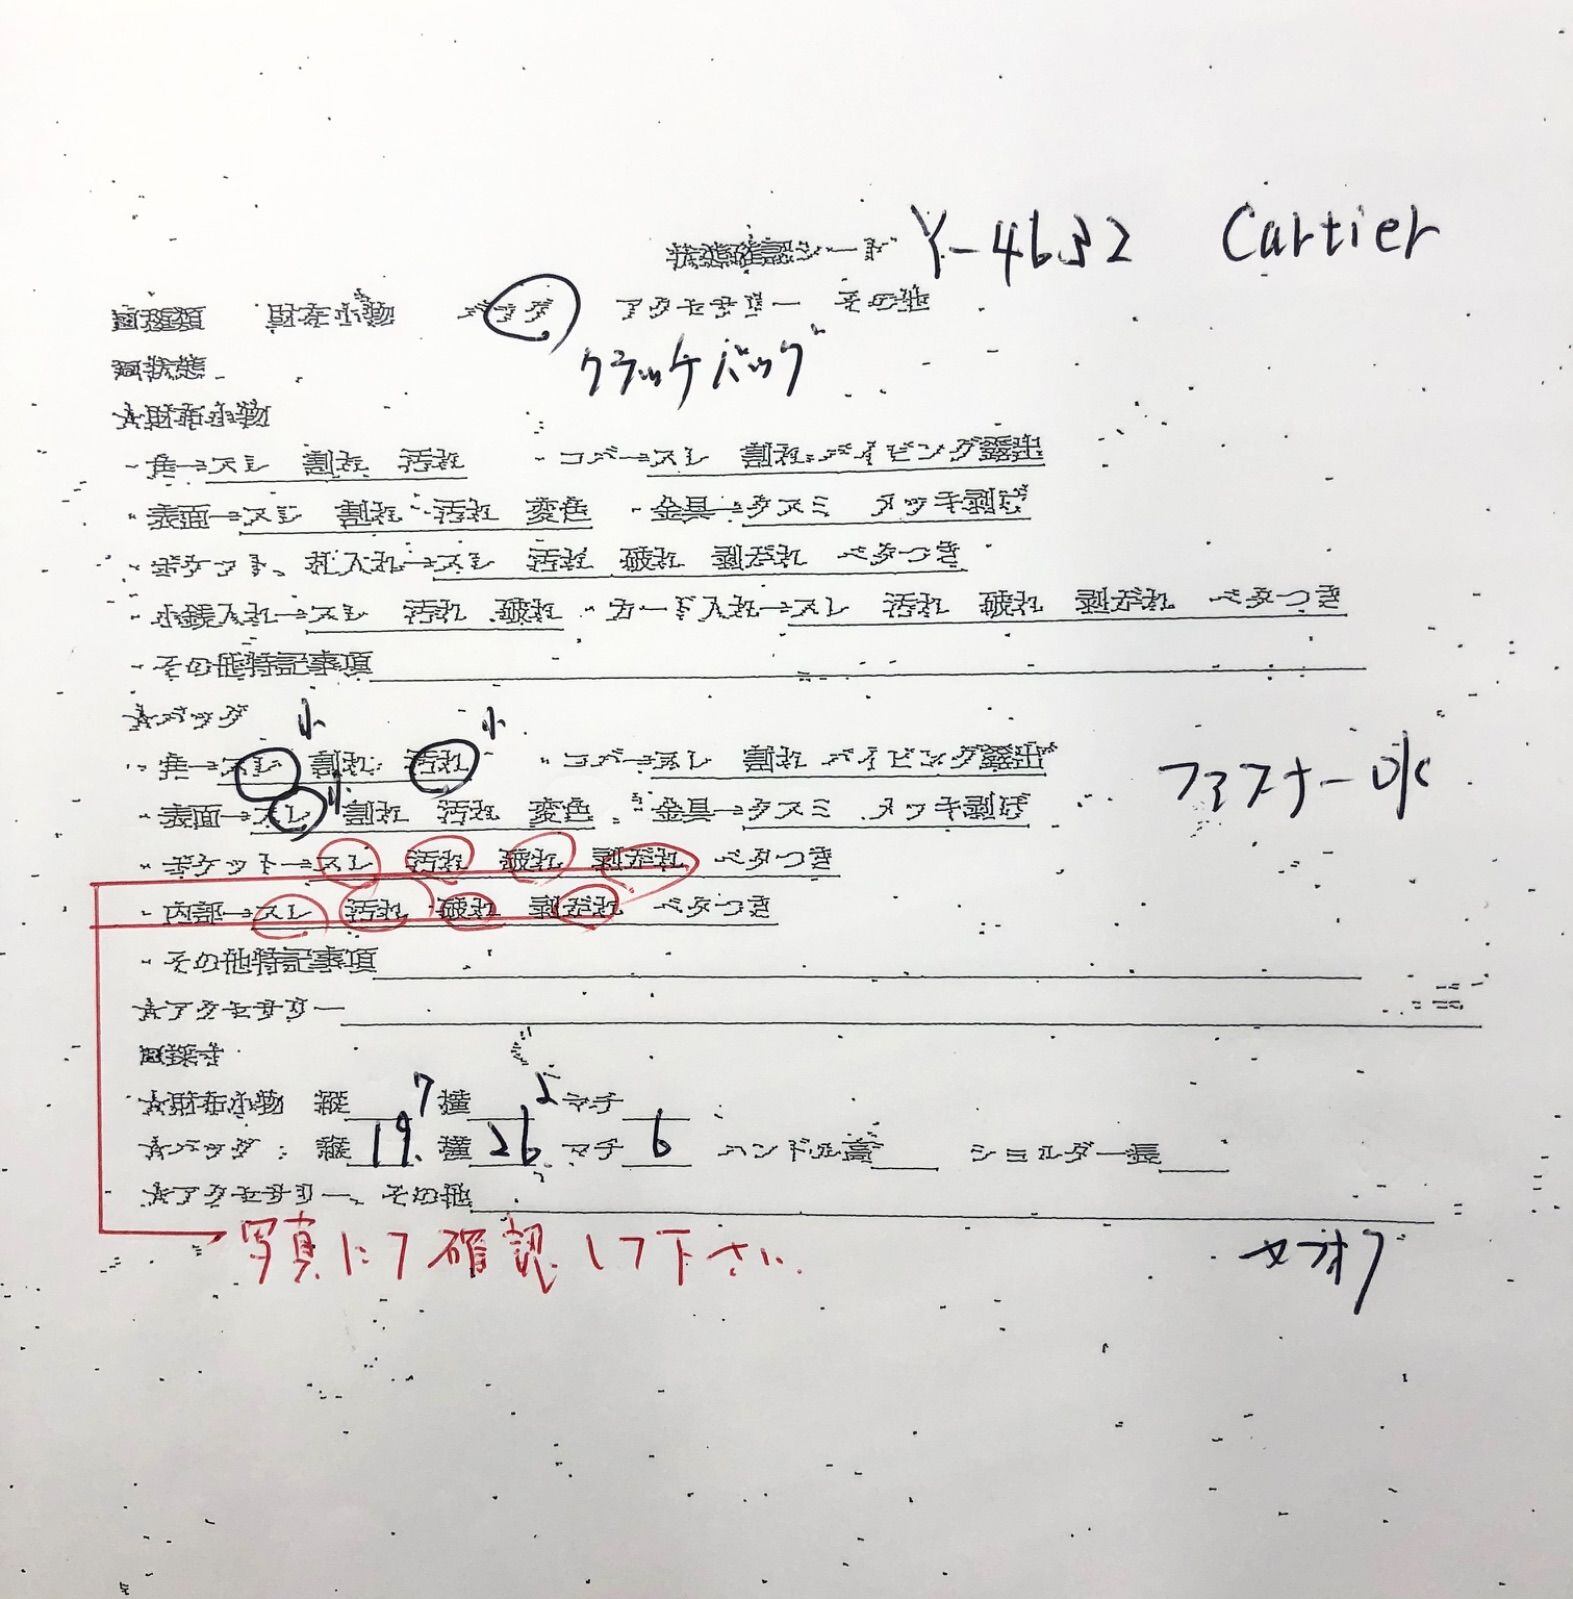 状態確認シート Y-4632 Cartier
□種類 財布小物 バッグ アクセサリー その他
クラッチバッグ
□状態
☆財布小物
・角→スレ 割れ 汚れ ・コバ→スレ 割れ パイピング露出
・表面→スレ 割れ 汚れ 変色 ・金具→クスミ メッキ剥げ
・ポケット、札入れ→スレ 汚れ 破れ 剥がれ ベタつき
・小銭入れ→スレ 汚れ 破れ ・カード入れ→スレ 汚れ 破れ 剥がれ ベタつき
・その他特記事項
☆バッグ 小 小
・角→スレ 割れ 汚れ ・コバ→スレ 割れ パイピング露出
ファスナーOK
・表面→スレ 小 割れ 汚れ 変色 ・金具→クスミ メッキ剥げ
・ポケット→スレ 汚れ 破れ 剥がれ ベタつき
・内部→スレ 汚れ 破れ 剥がれ ベタつき
・その他特記事項
☆アクセサリー
□採寸
☆財布小物 縦 7 横 5 マチ
☆バッグ: 縦 19. 横 26 マチ 6 ハンドル高 ショルダー長
☆アクセサリー、その他
写真にて確認して下さい ヤフオク